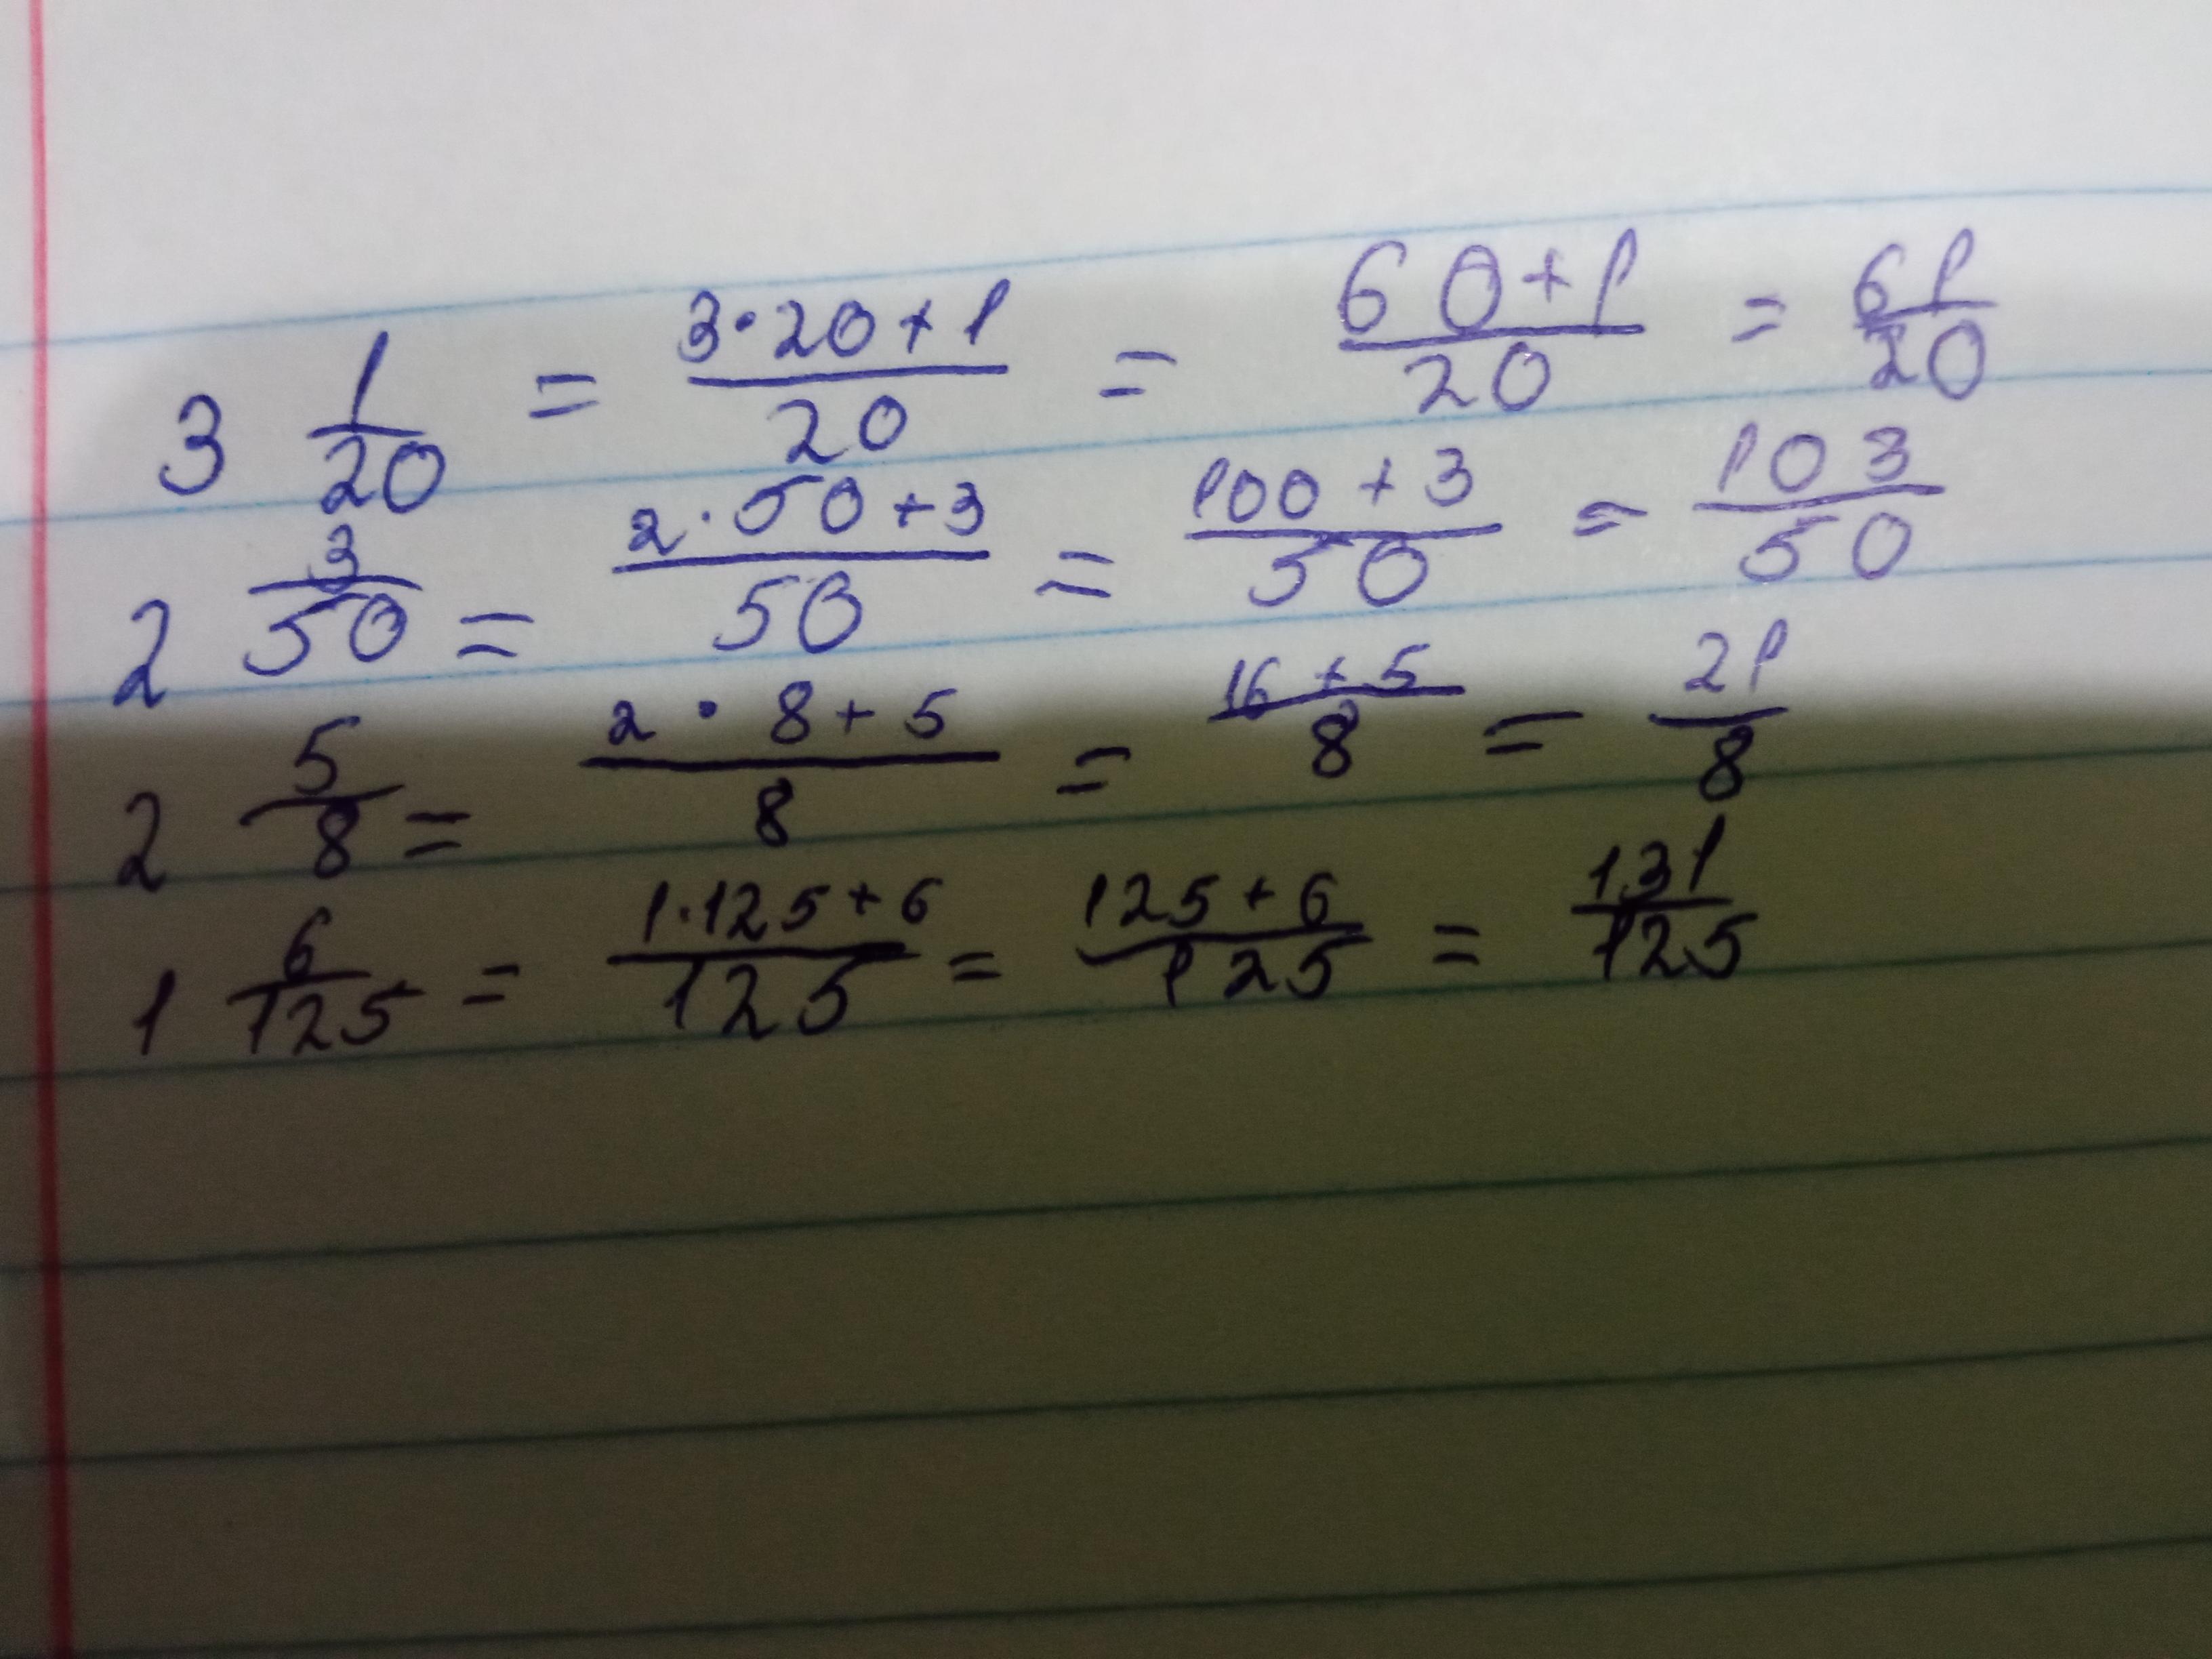 3 1/20 = (3·20+1)/20 = (60+1)/20 = 61/20
2 3/50 = (2·50+3)/50 = (100+3)/50 = 103/50
2 5/8 = (2·8+5)/8 = (16+5)/8 = 21/8
1 6/125 = (1·125+6)/125 = (125+6)/125 = 131/125